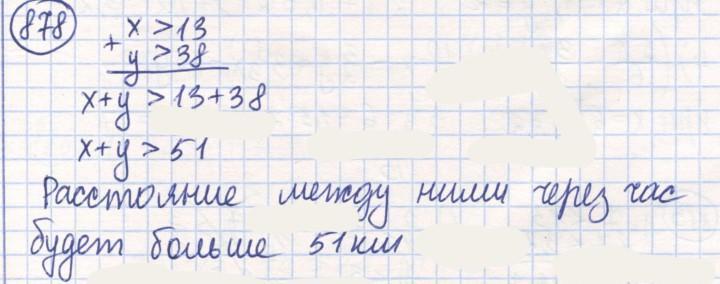 878
x > 13
+ y > 38
x+y > 13+38
x+y > 51
Расстояние между ними через час
будет больше 51км